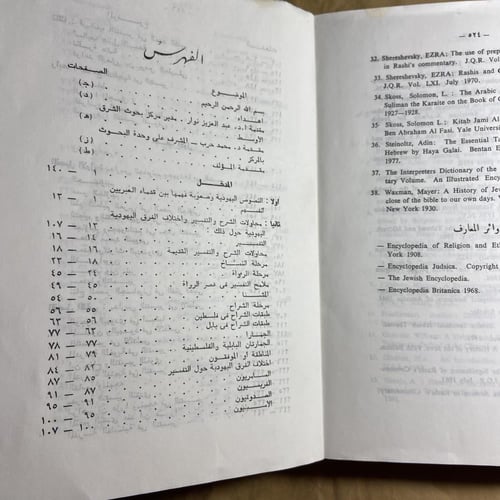 — ٥٢٤ —
32. Shereshevsky, EZRA: The use of prep
in Rashi's commentary. J.Q.R. Vol.
33. Shereshevsky, EZRA; Rashis and C
J.Q.R. Vol. LXI. July 1970.
34. Skoss, Solomon L. : The Arabic
Suliman the Karaite on the Book of
1927—1928.
35. Skoss, Solomon L. : Kitab Jami Al
Ben Abraham Al Fasi. Yale Univer
36. Steinoltz, Adin: The Essential Ta
Hebrew by Haya Galai. Bentan E
1977.
37. The Interpreters Dictionary of the
tary Volume. An Illustrated Ency
38. Waxman, Mayer: A History of Jew
close of the bible to our own days. V
New York 1930.
دوائر المعارف
— Encyclopedia of Religion and Eth
York 1908.
— Encyclopedia Judaica. Copyright
— The Jewish Encyclopedia.
— Encyclopedia Britanica 1968.
الفهرس
الموضوع الصفحات
بسم الله الرحمن الرحيم (ج)
اهـداء (د)
مقدمة ا.د. عبد العزيز نوار ـ مدير مركز بحوث الشرق
الأوسط (هـ)
مقدمة د. محمد حرب ـ المشرف على وحدة البحوث
بالمركز (ز)
مقدمة المؤلف (ط)
المدخل ١ — ١٤٠
أولا : النصوص اليهودية وصعوبة فهمها بين قدماء العبريين ١ — ١٣
ثانيا : محاولات الشرح والتفسير واختلاف الفرق اليهودية حول ذلك ١٣ — ١٠٧
التفسير ١٤ — ١٦
محاولات الشرح والتفسير القديمة ١٦ — ١٨
مرحلة النساخ ١٨ — ٢٢
مرحلة الرواة ٢٣ — ٢٤
ملامح التفسير في عصر الرواة ٢٤ — ٤٥
المشنا ٤٥ — ٤٩
مرحلة الشراح ٥٠ — ٥٤
طبقات الشراح في فلسطين ٥٤ — ٥٦
طبقات الشراح في بابل ٥٦ — ٦٣
الجمارا ٦٣ — ٧٧
الجمارتان البابلية والفلسطينية ٧٧ — ٧٨
المناطقة أو الموفقون ٧٨ — ٧٩
اختلاف الفرق اليهودية حول التفسير ٧٩ — ٨١
السامريون ٨١ — ٨٤
الفريسيون ٨٧ — ٩١
الصدوقيون ٩١ — ٩٥
الأسينيون ٩٥ — ١٠٠
١٠٠ — ١٠٧